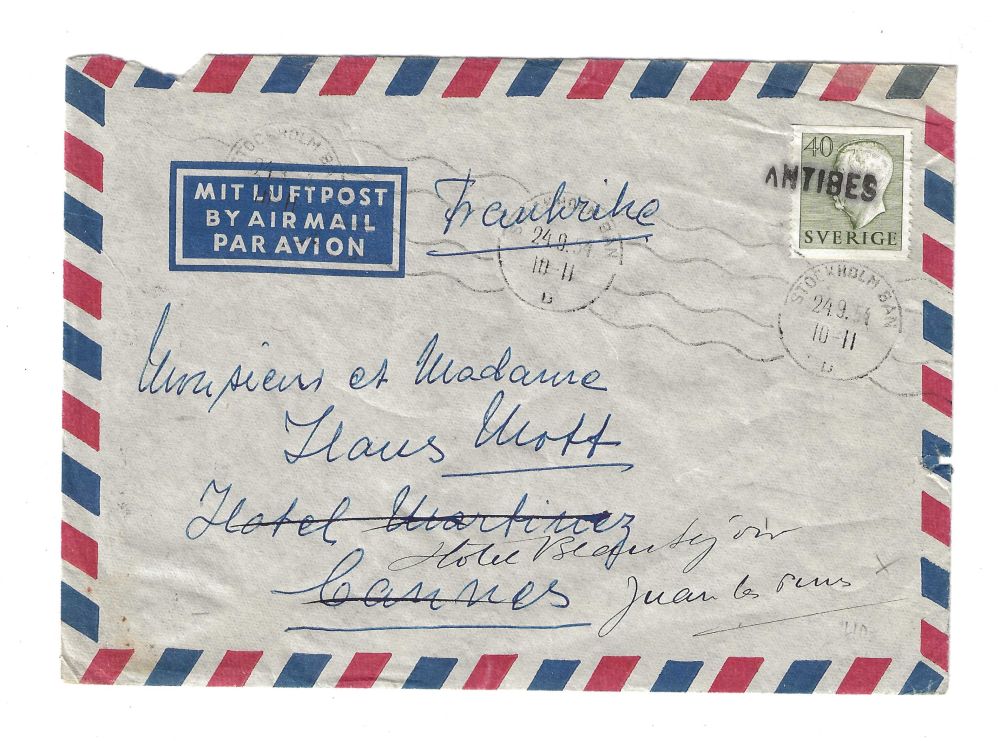 STOCKHOLM BAN
MIT LUFTPOST
BY AIR MAIL
PAR AVION
Frankrike
STOCKHOLM BAN
24.9.51
10-11
D
40
ANTIBES
SVERIGE
STOCKHOLM BAN
24.9.51
10-11
D
Monsieur et Madame
Hans Mott
Hotel Martinez
Hotel Beau Séjour
Cannes
Juan les Pins